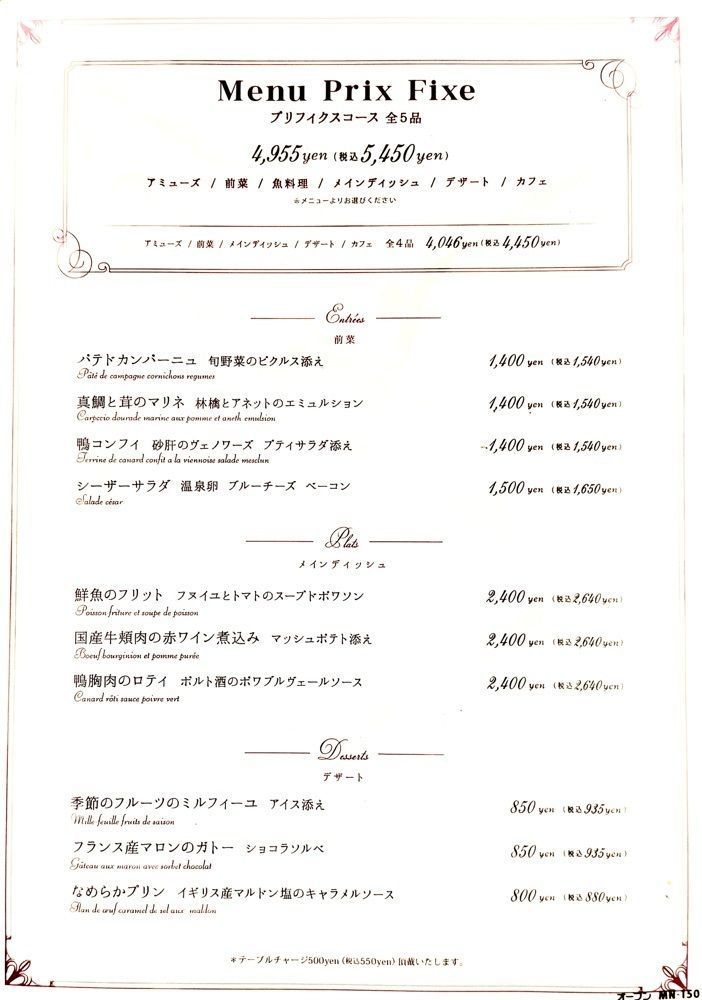 Menu Prix Fixe
プリフィクスコース 全5品
4,955yen (税込5,450yen)
アミューズ / 前菜 / 魚料理 / メインディッシュ / デザート / カフェ
※メニューよりお選びください
アミューズ / 前菜 / メインディッシュ / デザート / カフェ 全4品 4,046yen (税込4,450yen)
Entrées
前菜
パテドカンパーニュ 旬野菜のピクルス添え 1,400 yen (税込1,540yen)
Pâté de campagne cornichons regumes
真鯛と茸のマリネ 林檎とアネットのエミュルション 1,400 yen (税込1,540yen)
Carpccio dourade marine aux pomme et aneth emulsion
鴨コンフィ 砂肝のヴェノワーズ プティサラダ添え 1,400 yen (税込1,540yen)
Terrine de canard confit a la viennoise salade mesclun
シーザーサラダ 温泉卵 ブルーチーズ ベーコン 1,500 yen (税込1,650yen)
Salade césar
Plats
メインディッシュ
鮮魚のフリット フヌイユとトマトのスープドポワソン 2,400 yen (税込2,640yen)
Poisson friture et soupe de poisson
国産牛頬肉の赤ワイン煮込み マッシュポテト添え 2,400 yen (税込2,640yen)
Boeuf bourginion et pomme purée
鴨胸肉のロティ ポルト酒のポワブルヴェールソース 2,400 yen (税込2,640yen)
Canard rôti sauce poivre vert
Desserts
デザート
季節のフルーツのミルフィーユ アイス添え 850 yen (税込935yen)
Mille-feuille fruits de saison
フランス産マロンのガトー ショコラソルベ 850 yen (税込935yen)
Gâteau aux maron avec sorbet chocolat
なめらかプリン イギリス産マルドン塩のキャラメルソース 800 yen (税込880yen)
flan de œuf caramel de sel aux maldon
*テーブルチャージ500yen (税込550yen) 頂戴いたします。
オープン MN-150